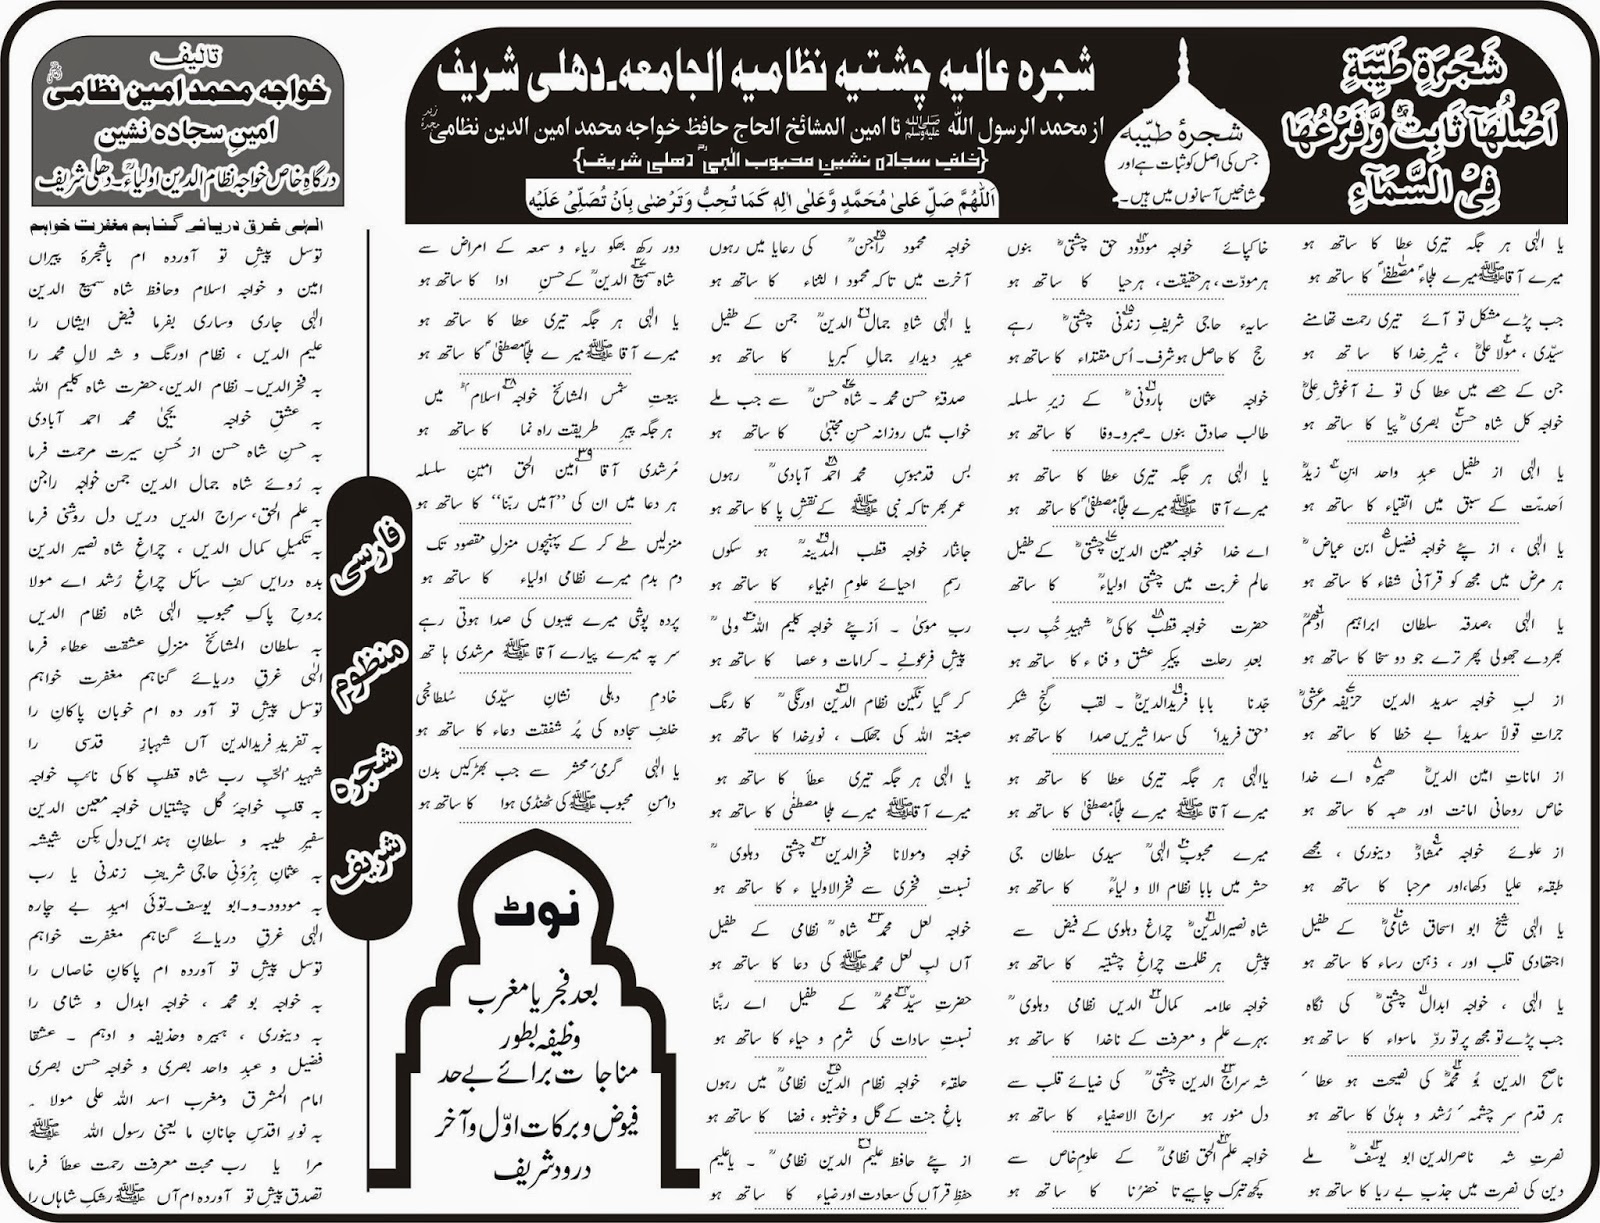 شَجَرَةٍ طَيِّبَةٍ
اَصْلُهَا ثَابِتٌ وَّفَرْعُهَا
فِیْ السَّمَآءِ
شجرۂ طیّبہ
جس کی اصل کو ثبات ہے اور
شاخیں آسمانوں میں ہیں۔
شجرہ عالیہ چشتیہ نظامیہ الجامعہ۔دھلی شریف
از محمد الرسول اللہ ﷺ تا امین المشائخ الحاج حافظ خواجہ محمد امین الدین نظامی
{خلفِ سجادہ نشینِ محبوب الٰہیؒ دھلی شریف}
اَللّٰهُمَّ صَلِّ عَلٰى مُحَمَّدٍ وَّعَلٰى اٰلِهٖ كَمَا تُحِبُّ وَتَرْضٰى بِاَنْ تُصَلِّىَ عَلَيْهِ
تالیف
خواجہ محمد امین نظامی
امینِ سجادہ نشین
درگاہِ خاص خواجہ نظام الدین اولیاءؒ۔دھلی شریف
یا الٰہی ہر جگہ تیری عطا کا ساتھ ہو
میرے آقا ﷺ میرے ملجاء مصطفٰےؐ کا ساتھ ہو
جب پڑے مشکل تو آئے تیری رحمت تھامنے
سیّدی ، مولا علیؓ ، شیرِ خدا کا ساتھ ہو
جن کے حصے میں عطا کی تو نے آغوشِ علیؓ
خواجہ کل شاہ حسن بصریؒ پیا کا ساتھ ہو
یا الٰہی از طفیل عبدِ واحد ابنِ زیدؒ
اَحدیّت کے سبق میں اتقیاء کا ساتھ ہو
یا الٰہی ، از پئے خواجہ فضیل ابن عیاضؒ
ہر مرض میں مجھ کو قرآنی شفاء کا ساتھ ہو
یا الٰہی ،صدقہ سلطان ابراہیم ادھمؒ
بھردے جھولی پھر ترے جو دو سخا کا ساتھ ہو
از لبِ خواجہ سدید الدین حزیفہ مرعشیؒ
جراتِ قولاً سدیداً بے خطا کا ساتھ ہو
از اماناتِ امین الدین ھبیرہؒ اے خدا
خاص روحانی امانت اور ھبہ کا ساتھ ہو
از علوئے خواجہ ممشادؒ دینوری ، مجھے
طبقہء علیا دکھا،اور مرحبا کا ساتھ ہو
یا الٰہی شیخ ابو اسحاق شامیؒ کے طفیل
اجتھادی قلب اور ، ذہن رساء کا ساتھ ہو
یا الٰہی ، خواجہ ابدال چشتیؒ کی نگاہ
جب پڑے تو مجھ پر تو ردّ ماسواء کا ساتھ ہو
ناصح الدین بُو محمدؒ کی نصیحت ہو عطا
ہر قدم سر چشمہء رُشد و ہدیٰ کا ساتھ ہو
نصرتِ شہ ناصرالدین ابو یوسفؒ ملے
دین کی نصرت میں جذبِ بے ریا کا ساتھ ہو
خاکپائے خواجہ مودُود حق چشتیؒ بنوں
ہرمودّت، ہرحقیقت، ہرحیا کا ساتھ ہو
سایہء حاجی شریفِ زندنی چشتیؒ رہے
حج کا حاصل ہو شرف۔ اُس مقتداء کا ساتھ ہو
خواجہ عثمان ہارونیؒ کے زیرِ سلسلہ
طالب صادق بنوں ۔صبرو۔وفا کا ساتھ ہو
یا الٰہی ہر جگہ تیری عطا کا ساتھ ہو
میرے آقا ﷺ میرے ملجا مصطفٰےؐ کا ساتھ ہو
اے خدا خواجہ معین الدین چشتیؒ کے طفیل
عالم غربت میں چشتی اولیاءؒ کا ساتھ ہو
حضرت خواجہ قطب کاکیؒ شھیدِ حُبِ رب
بعدِ رحلت پیکرِ عشق و فناء کا ساتھ ہو
جَدنا بابا فریدالدینؒ۔ لقب گنجِ شکر
’حق فریدا‘ کی سدا شیریں صدا کا ساتھ ہو
یاالٰہی ہر جگہ تیری عطا کا ساتھ ہو
میرے آقا ﷺ میرے ملجا مصطفٰےؐ کا ساتھ ہو
میرے محبوبِ الٰہیؒ سیدی سلطان جی
حشر میں بابا نظام الا ولیاءؒ کا ساتھ ہو
شاہ نصیرالدینؒ چراغ دہلوی کے فیض سے
پیشِ ہر ظلمت چراغِ چشتیہ کا ساتھ ہو
خواجہ علامہ کمال الدین نظامی دہلویؒ
بہرے علم و معرفت کے ناخدا کا ساتھ ہو
شہ سراج الدین چشتیؒ کی ضیائے قلب سے
دل منور ہو سراج الاصفیاء کا ساتھ ہو
خواجہ علم الحق نظامیؒ کے علومِ خاص سے
کچھ تبرک چاہیے تا خضرُنا کا ساتھ ہو
خواجہ محمود راجنؒ کی رعایا میں رہوں
آخرت میں تاکہ محمود ا لثناء کا ساتھ ہو
یا الٰہی شاہِ جمال الدینؒ جمن کے طفیل
عیدِ دیدارِ جمالِ کبریا کا ساتھ ہو
صدقۂ حسن محمد ۔ شاہ حسنؒ سے جب ملے
خواب میں روزانہ حسنِ مجتبیٰ کا ساتھ ہو
بس قدمبوسِ محمد احمد آبادیؒ رہوں
عمر بھر تا کہ نبی ﷺ کے نقش پا کا ساتھ ہو
جانثارِ خواجہ قطب المدینہؒ ہو سکوں
رسمِ احیائے علومِ انبیاء کا ساتھ ہو
ربِ موسیٰ ۔ اَز پئے خواجہ کلیم اللہ ولیؒ
پیشِ فرعونے ۔ کرامات و عصا کا ساتھ ہو
کر گیا رنگین نظام الدین اورنگیؒ کا رنگ
صبغتہ اللہ کی جھلک ، نورِ خدا کا ساتھ ہو
یا الٰہی ہر جگہ تیری عطا کا ساتھ ہو
میرے آقا ﷺ میرے ملجا مصطفٰی کا ساتھ ہو
خواجہ ومولانا فخرالدین چشتی دہلویؒ
نسبتِ فخری سے فخرالاولیاء کا ساتھ ہو
خواجہ لعل محمد شاہؒ نظامی کے طفیل
آں لبِ لعل محمد ﷺ کی دعا کا ساتھ ہو
حضرتِ سیّد محمدؒ کے طفیل اے ربَّنا
نسبتِ سادات کی شرم و حیاء کا ساتھ ہو
حلقہء خواجہ نظام الدین نظامیؒ میں رہوں
باغِ جنت کے گل و خوشبو ، فضا کا ساتھ ہو
از پئے حافظ علیم الدین نظامیؒ ۔ یاعلیم
حفظِ قرآں کی سعادت اور ضیاء کا ساتھ ہو
دور رکھ بھکو ریاء و سمعہ کے امراض سے
شاہ سمیع الدینؒ کے حسنِ ادا کا ساتھ ہو
یا الٰہی ہر جگہ تیری عطا کا ساتھ ہو
میرے آقا ﷺ میرے ملجا مصطفٰیؐ کا ساتھ ہو
بیعتِ شمس المشائخ خواجہ اسلامؒ میں
ہر جگہ پیرِ طریقت راہ نما کا ساتھ ہو
مُرشدی آقا امین الحق امینِ سلسلہ
ہر دعا میں ان کی ”آمیں ربَّنا“ کا ساتھ ہو
منزلیں طے کر کے پہنچوں منزلِ مقصود تک
دم بدم میرے نظامی اولیاء کا ساتھ ہو
پردہ پوشی میرے عیبوں کی صدا ہوتی رہے
سر پہ میرے پیارے آقا ﷺ مرشدی ہاتھ
خادمِ دہلی نشانِ سیّدی سُلطانجی
خلفِ سجادہ کی پُر شفقت دعاء کا ساتھ ہو
یا الٰہی گرمیِ محشر سے جب بھڑکیں بدن
دامنِ محبوب ﷺ کی ٹھنڈی ہوا کا ساتھ ہو
نوٹ
بعد فجر یا مغرب
وظیفہ بطور
مناجات برائے بے حد
فیوض و برکات اوّل و آخر
درود شریف
فارسی
منظوم
شجرہ
شریف
الٰہی غرق دریائے گناہم مغفرت خواہم
توسل پیشِ تو آوردہ ام باشجرۂ پیراں
امین و خواجہ اسلام وحافظ شاہ سمیع الدین
الٰہی جاری وساری بفرما فیض ایشاں را
علیم الدیں ، نظام اورنگ و شہ لالِ محمد را
بہ فخرالدیں۔ نظام الدین، حضرت شاہ کلیم اللہ
بہ عشقِ خواجہ یحییٰ محمد احمد آبادی
بہ حسنِ شاہ حسن از حُسنِ سیرت مرحمت فرما
بہ رُوئے شاہ جمال الدین جمن خواجہ راجن
بہ علم الحق، سراج الدیں دریں دل روشنی فرما
بہ تکمیلِ کمال الدیں ، چراغِ شاہ نصیر الدین
بدہ درایں کفِ سائل چراغِ رُشد اے مولا
بروحِ پاکِ محبوبِ الٰہی شاہ نظام الدین
بہ سلطان المشائخ منزلِ عشقت عطاء فرما
الٰہی غرقِ دریائے گناہم مغفرت خواہم
توسل پیشِ تو آور دہ ام خوبان پاکانِ را
بہ تفریدِ فریدالدین آں شہبازِ قدسی را
شہید ُالحُبِ رب شاہ قطبِ کاکی نائبِ خواجہ
بہ قلبِ خواجۂ کُل چشتیاں خواجہ معین الدین
سفیرِ طیبہ و سلطانِ ہند ایں دل بِکن شیشہ
بہ عثمانِ ہِرُونی حاجی شریفِ زندنی یا رب
بہ مودود۔و۔ابو یوسف۔توئی امیدِ بے چارہ
الٰہی غرقِ دریائے گناہم مغفرت خواہم
توسل پیشِ تو آوردہ ام پاکانِ خاصاں را
بہ خواجہ بو محمد ، خواجہ ابدال و شامی را
بہ دینوری ، ہبیرہ وحذیفہ و ادہم ۔ عشقا
فضیل و عبدِ واحد بصری و خواجہ حسن بصری
امام المشرق ومغرب اسد اللہ علی مولا ۔
بہ نورِ اقدسِ جانانِ ما یعنی رسول اللہ ﷺ
مرا یا رب محبت معرفت رحمت عطاء فرما
تصدق پیشِ تو آوردہ ام آں ﷺ رشکِ شاہاں را